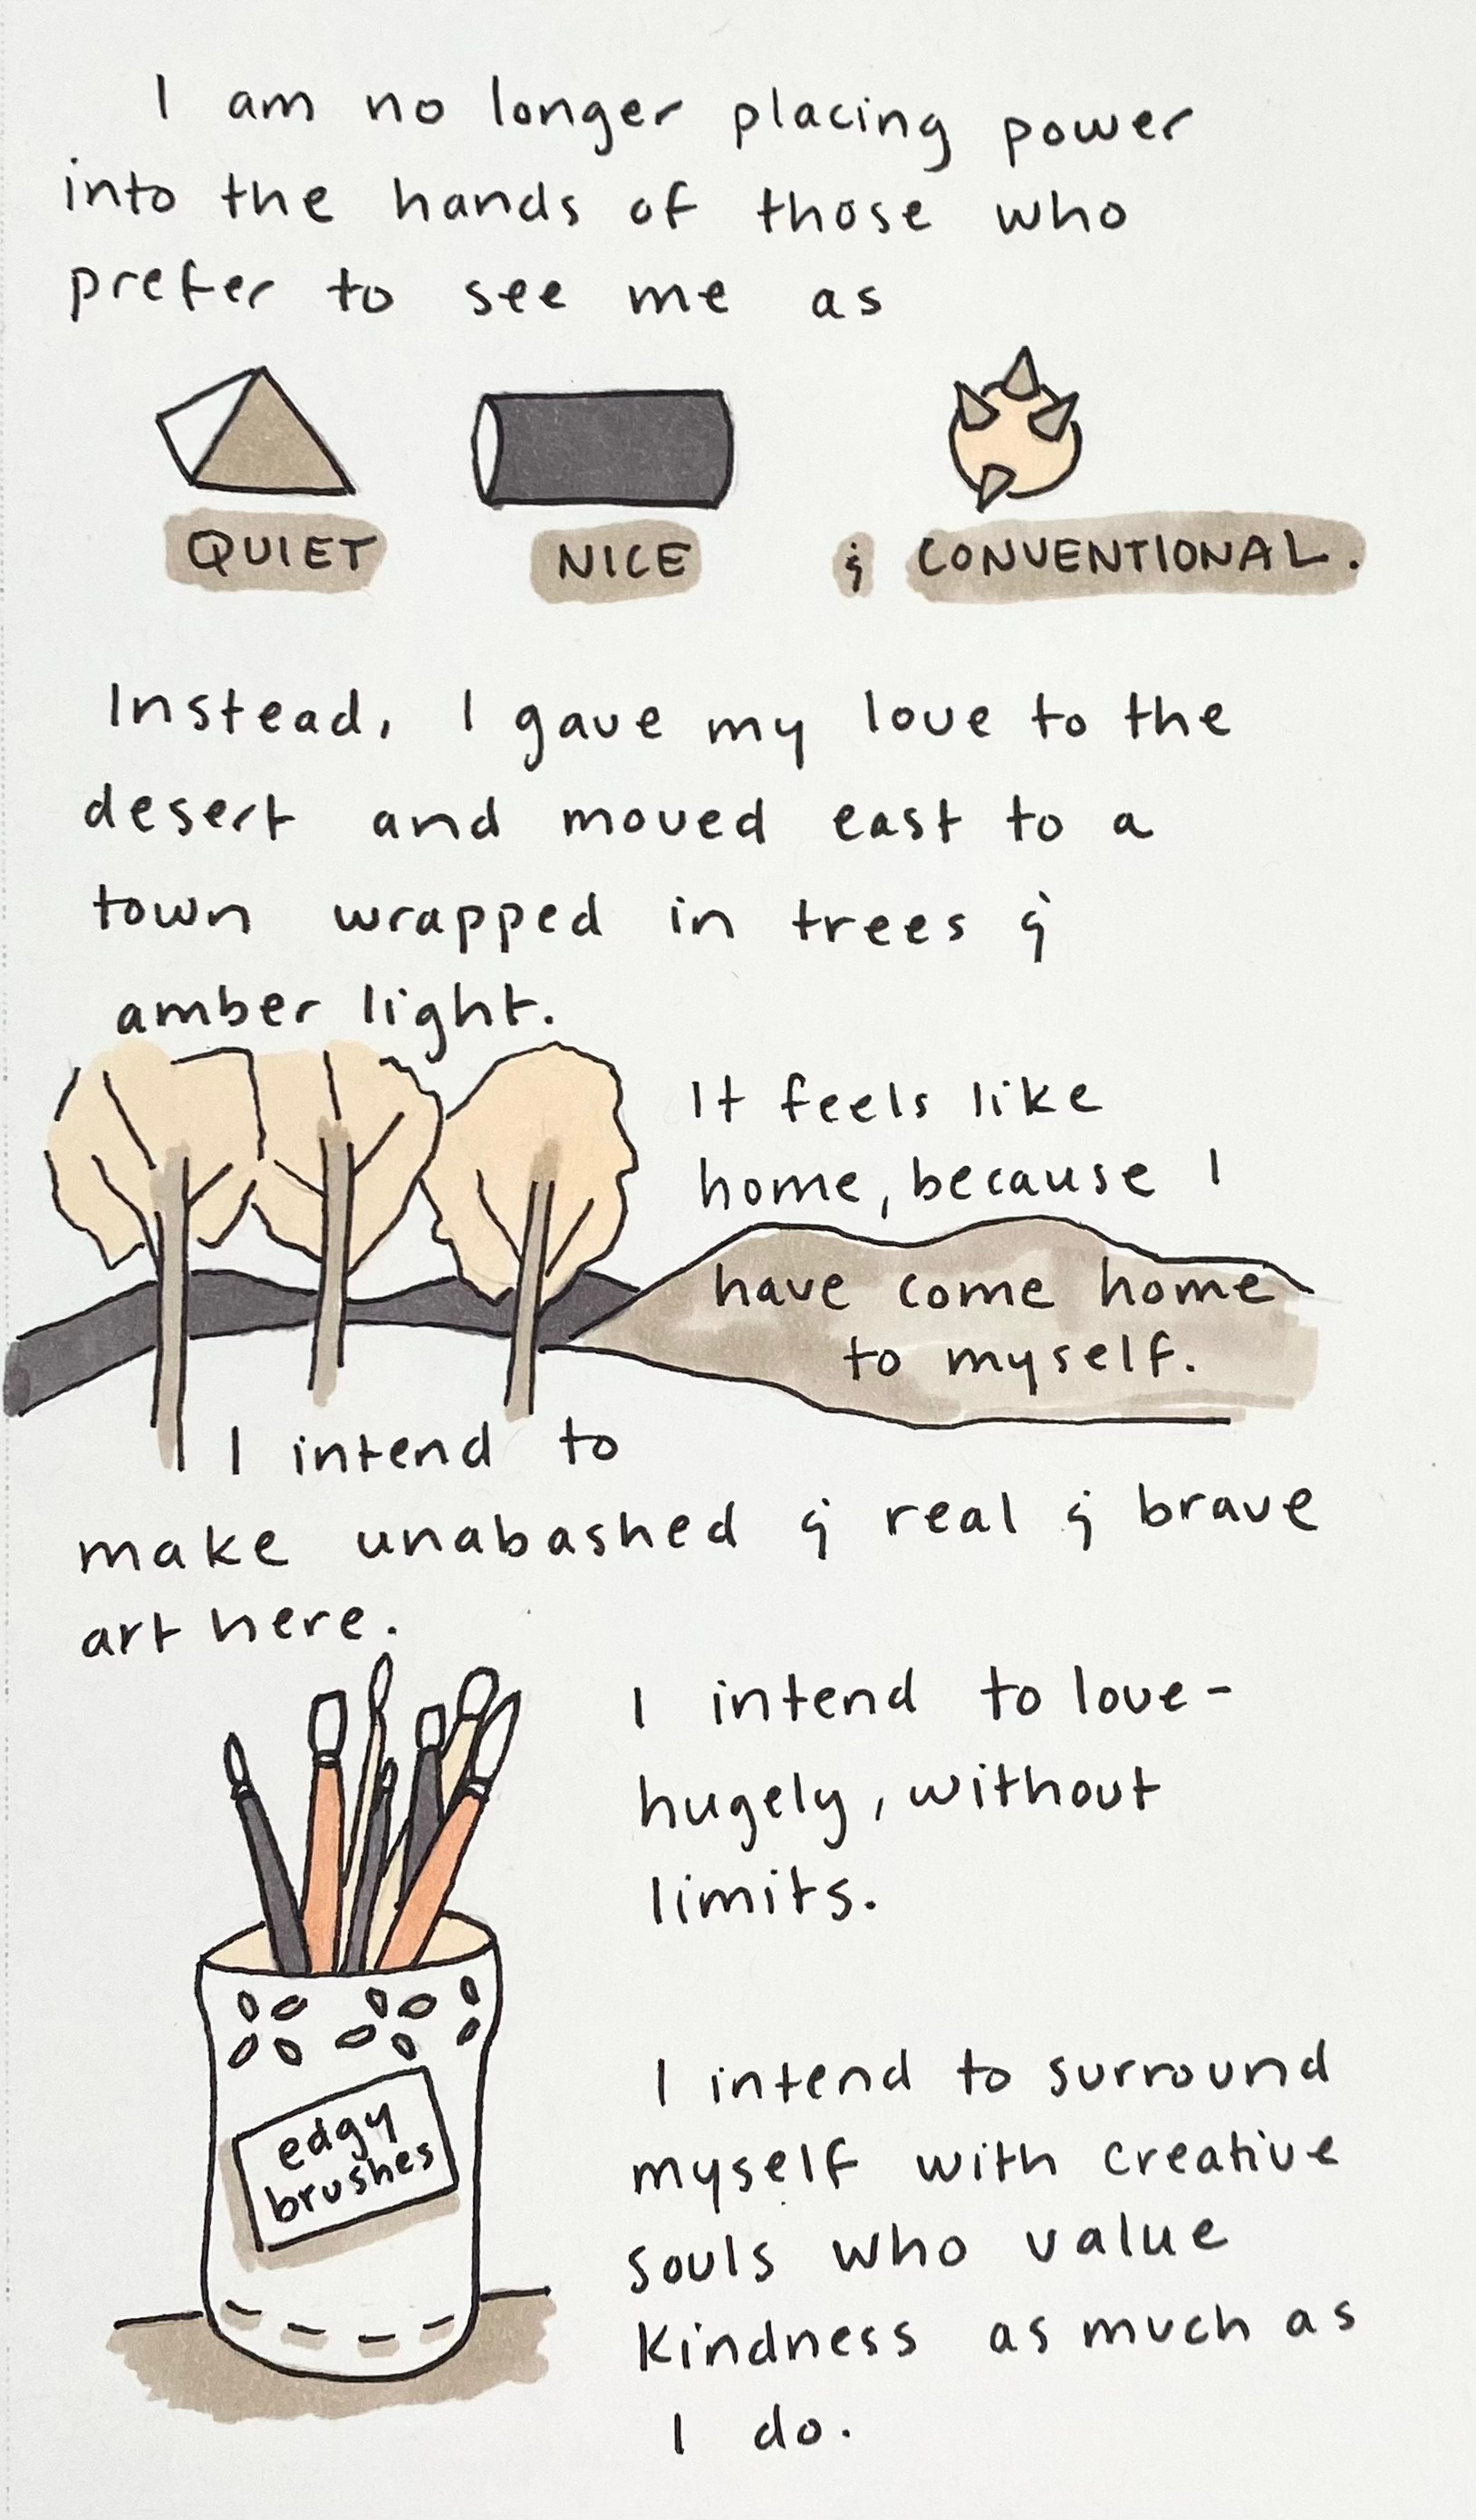 I am no longer placing power
into the hands of those who
prefer to see me as
QUIET NICE & CONVENTIONAL.
Instead, I gave my love to the
desert and moved east to a
town wrapped in trees &
amber light.
It feels like
home, because I
have come home
to myself.
I intend to
make unabashed & real & brave
art here.
I intend to love-
hugely, without
limits.
edgy
brushes
I intend to surround
myself with creative
souls who value
kindness as much as
I do.